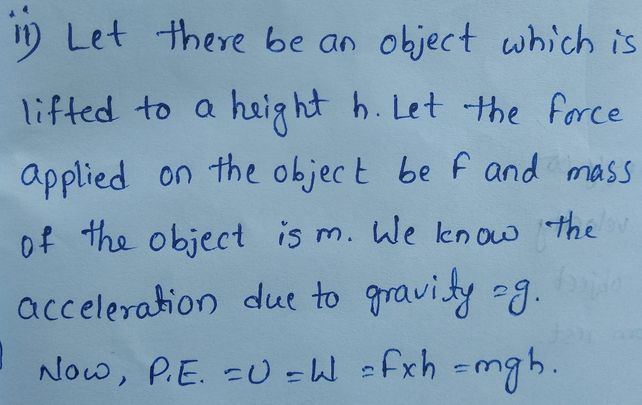 ii) Let there be an object which is
lifted to a height h. Let the force
applied on the object be f and mass
of the object is m. We know the
acceleration due to gravity =g.
Now, P.E. =U = W =fxh =mgh.